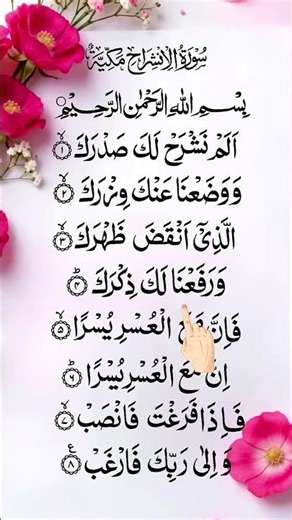 سُوْرَةُ الْاِنْشِرَاحِ مَكِّيَّةٌ
بِسْمِ اللّٰهِ الرَّحْمٰنِ الرَّحِيْمِ
اَلَمْ نَشْرَحْ لَكَ صَدْرَكَ ۙ﴿۱﴾
وَوَضَعْنَا عَنْكَ وِزْرَكَ ۙ﴿۲﴾
الَّذِيْۤ اَنْقَضَ ظَهْرَكَ ۙ﴿۳﴾
وَرَفَعْنَا لَكَ ذِكْرَكَ ؕ﴿۴﴾
فَاِنَّ مَعَ الْعُسْرِ يُسْرًا ۙ﴿۵﴾
اِنَّ مَعَ الْعُسْرِ يُسْرًا ؕ﴿۶﴾
فَاِذَا فَرَغْتَ فَانْصَبْ ۙ﴿۷﴾
وَاِلٰى رَبِّكَ فَارْغَبْ ﴿۸﴾ ع